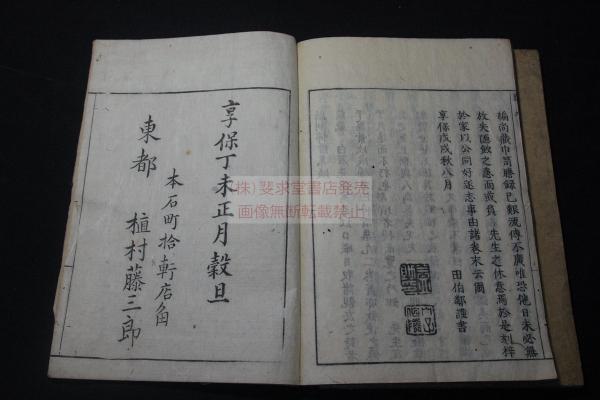 楠尚藏中嘗謄録已艱流傳不廣唯恐他日未必無
放失殘缺之患而或負 先生之休意焉於是刻梓
於家以公同好迺志事由諸卷末云爾
享保戊戌秋八月 田伯鄰謹書
享保丁未正月穀旦
本石町拾軒店角
東都 植村藤三郎
(株)斐求堂書店発売
画像無断転載禁止